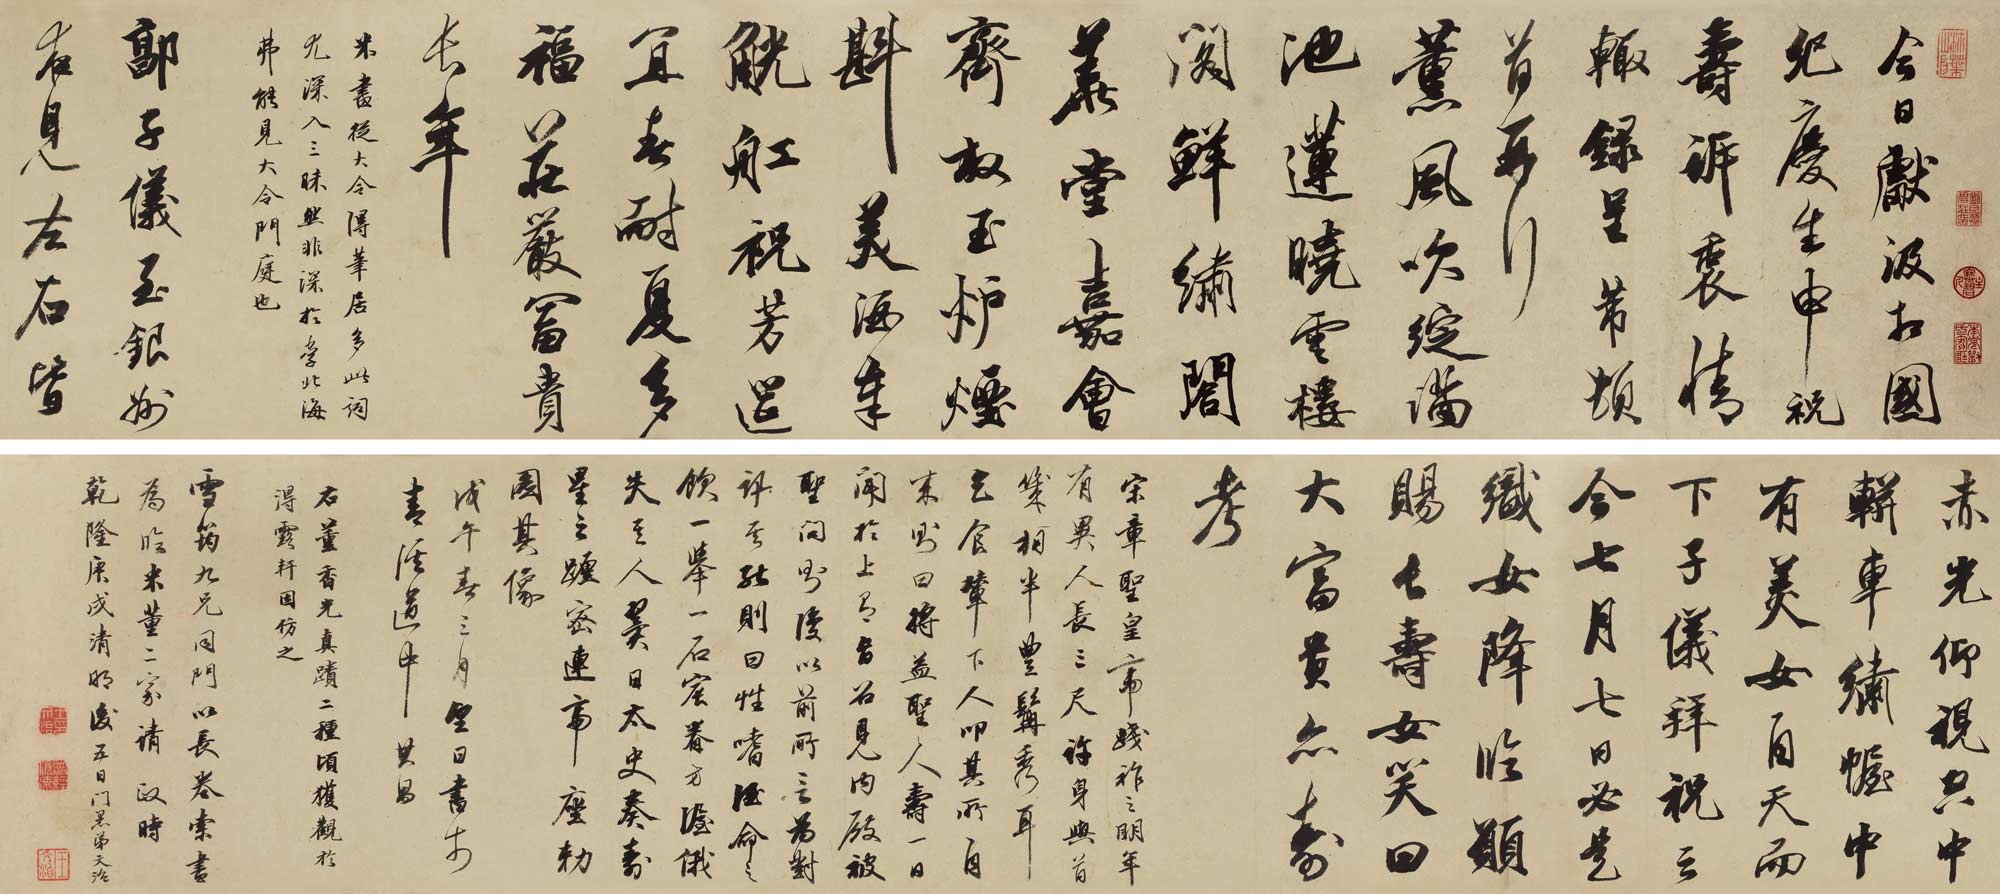 今日獻汲相國
紀慶生申祝
壽詞裏情
輙錄呈带頌
首再行
薰風吹綻滿
池蓮曉雲樓
閣鮮繡閣
華堂嘉會
齊放玉炉煙
斟美酒奉
觥舡祝芳筵
宜春耐夏多
福莊嚴富貴
長年
米書從大令得筆居多此詞
尤深入三昧然非深於李北海
弗能見大令門庭也
郭子儀至銀州
夜見左右皆
赤光仰視空中
輧車繡幄中
有美女自天而
下子儀拜祝云
今七月七日必是
織女降臨願
賜長壽女笑曰
大富貴亦壽
考
宋章聖皇帝踐祚之明年
有異人長三尺許身與首
幾相半豐髯秀耳
乞食輦下人叩其所自
來則曰將益聖人壽一日
聞於上有旨召見內殿被
聖問則復以前所言為對
訊其能則曰性嗜酒命之
飲一舉一石宸眷方渥俄
失其人翼日太史奏壽
星之躔密連帝座勅
圖其像
戊午春三月望日書於
青溪道中 其昌
右董香光真蹟二種頃獲觀於
得雲軒因仿之
雪筠九兄同門以長卷索書
為臨米董二家請政時
乾隆庚戌清明後五日門愚弟文治